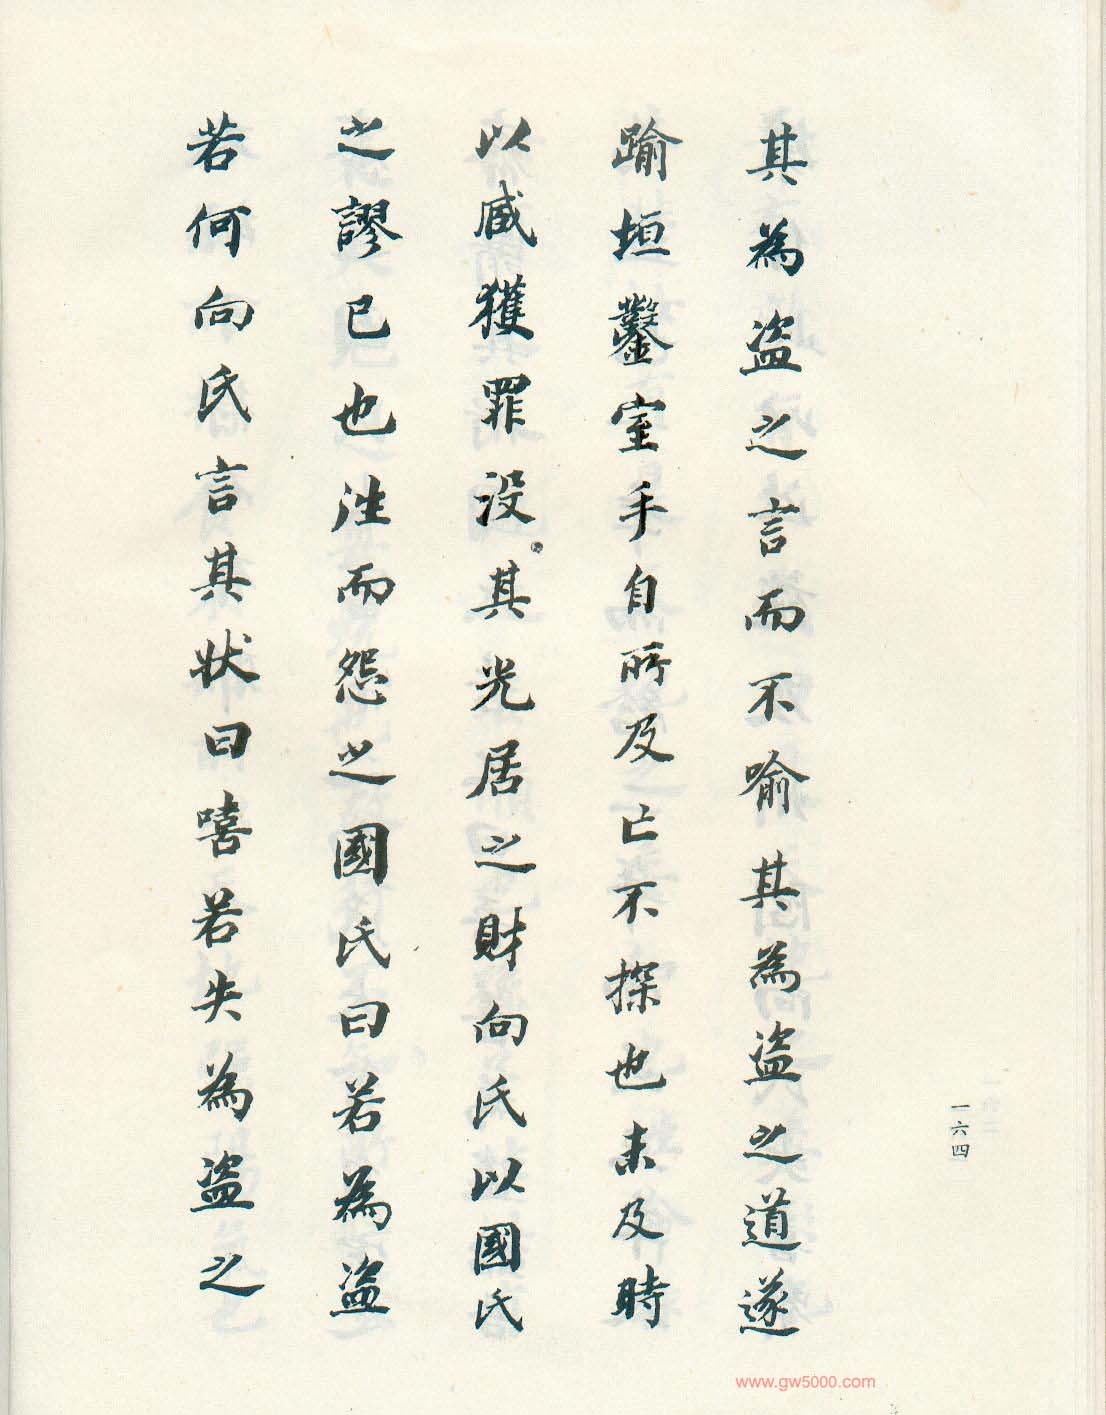 其為盜之言而不喻其為盜之道遂
踰垣鑿室手目所及亡不探也未及時
以臧獲罪沒其光居之財向氏以國氏
之謬已也往而怨之國氏曰若為盜
若何向氏言其狀曰嘻若失為盜之
一六四
www.gw5000.com